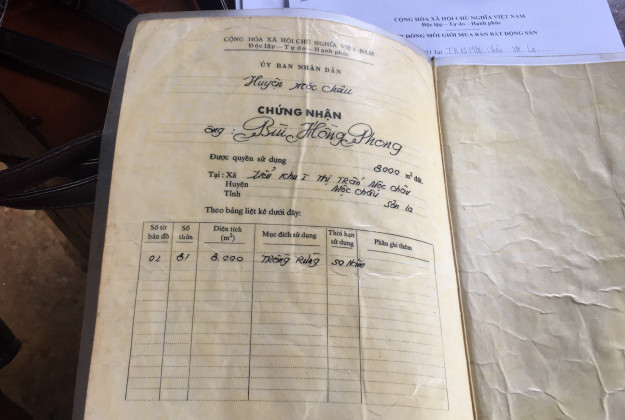 CỘNG HÒA XÃ HỘI CHỦ NGHĨA VIỆT NAM
ĐỒNG MÔI GIỚI MUA BÁN BẤT ĐỘNG SẢN
CỘNG HÒA XÃ HỘI CHỦ NGHĨA VIỆT NAM
Độc lập — Tự do — Hạnh phúc
ỦY BAN NHÂN DÂN
Huyện Mộc Châu
CHỨNG NHẬN
ông : Bùi Hồng Phong
Được quyền sử dụng 8000 m² đất
Tại : Xã Tiểu khu I Thị Trấn Mộc Châu
Huyện Mộc Châu
Tỉnh Sơn La
Theo bảng liệt kê dưới đây:
Số tờ bản đồ Số thửa Diện tích (m²) Mục đích sử dụng Thời hạn sử dụng Phần ghi thêm
02 81 8.000 Trồng Rừng 50 Năm